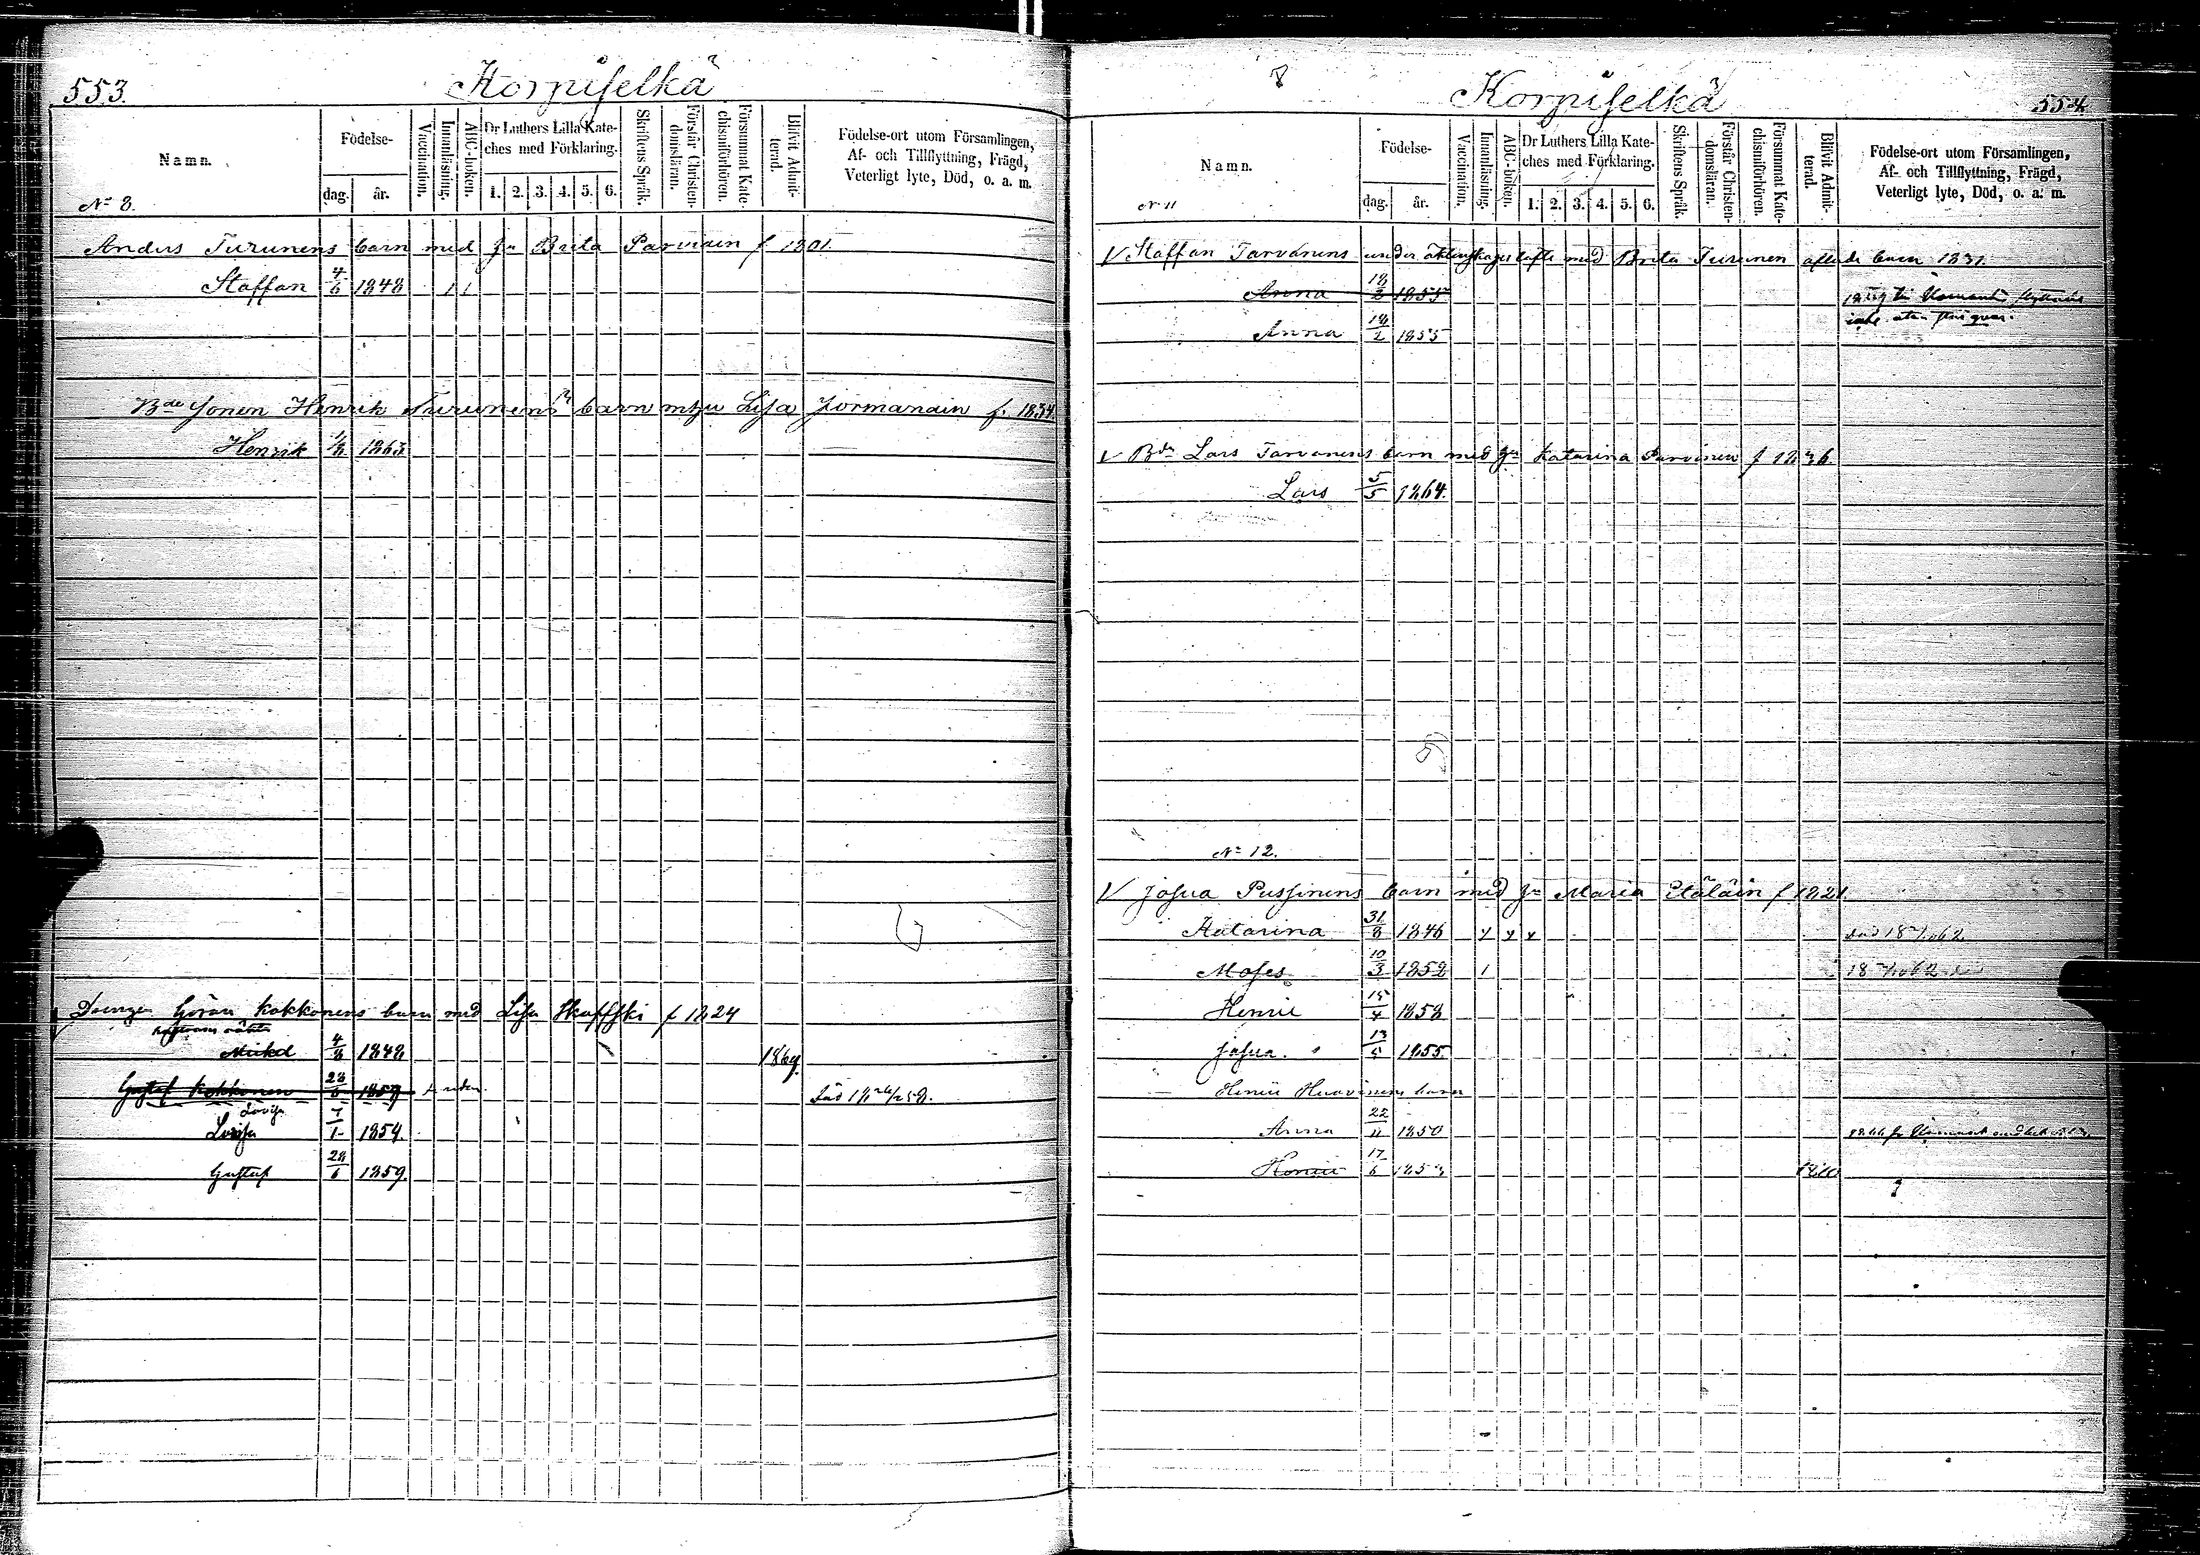 553.
Korpiselkä
Namn.
Födelse-
dag.
år.
Vaccination.
Innanläsning.
ABC-boken.
Dr Luthers Lilla Kate-
ches med Förklaring.
1. 2. 3. 4. 5. 6.
Skriftens Språk.
Förstår Christen-
domsläran.
Försummat Kate-
chismiförhören.
Blifvit Admit-
terad.
Födelse-ort utom Församlingen,
Af- och Tillflyttning, Frägd,
Veterligt lyte, Död, o. a. m.
No 8.
Anders Turunens barn med hu Brita Parviain f 1801.
Staffan 4/6 1848 1 1
Bde Sonen Henrik Turunens barn m hu Lisa Jormanain f. 1834.
Henrik 1/8 1863
Göran Kokkonens barn med Lisa f 1824
Mickel 4/8 1848 1869.
Gustaf Kokkonen 28/6 1859
Lovisa
Lovisa 7/1 1854.
Gustaf 28/6 1859.
8
Korpiselkä
554.
Namn.
Födelse-
dag.
år.
Vaccination.
Innanläsning.
ABC-boken.
Dr Luthers Lilla Kate-
ches med Förklaring.
1. 2. 3. 4. 5. 6.
Skriftens Språk.
Förstår Christen-
domsläran.
Försummat Kate-
chismiförhören.
Blifvit Admit-
terad.
Födelse-ort utom Församlingen,
Af- och Tillflyttning, Frägd,
Veterligt lyte, Död, o. a. m.
No 11
Staffan Tarvanens under äktenskaps löfte med Brita Turunen aflade barn 1831.
Anna 18/2 1855
Anna 18/2 1855
Bdr Lars Tarvanens barn med hu Katarina Parvinen f 1836.
Lars 5/5 1864.
No 12.
Josua Pussinens barn med hu Maria Eteläin f 1821.
Katarina 31/8 1846
Moses 10/3 1852 1
Henric 15/4 1858
Josua. 13/5 1855.
Henric Huovinens barn
Anna 22/11 1850
Henric 17/6 1870